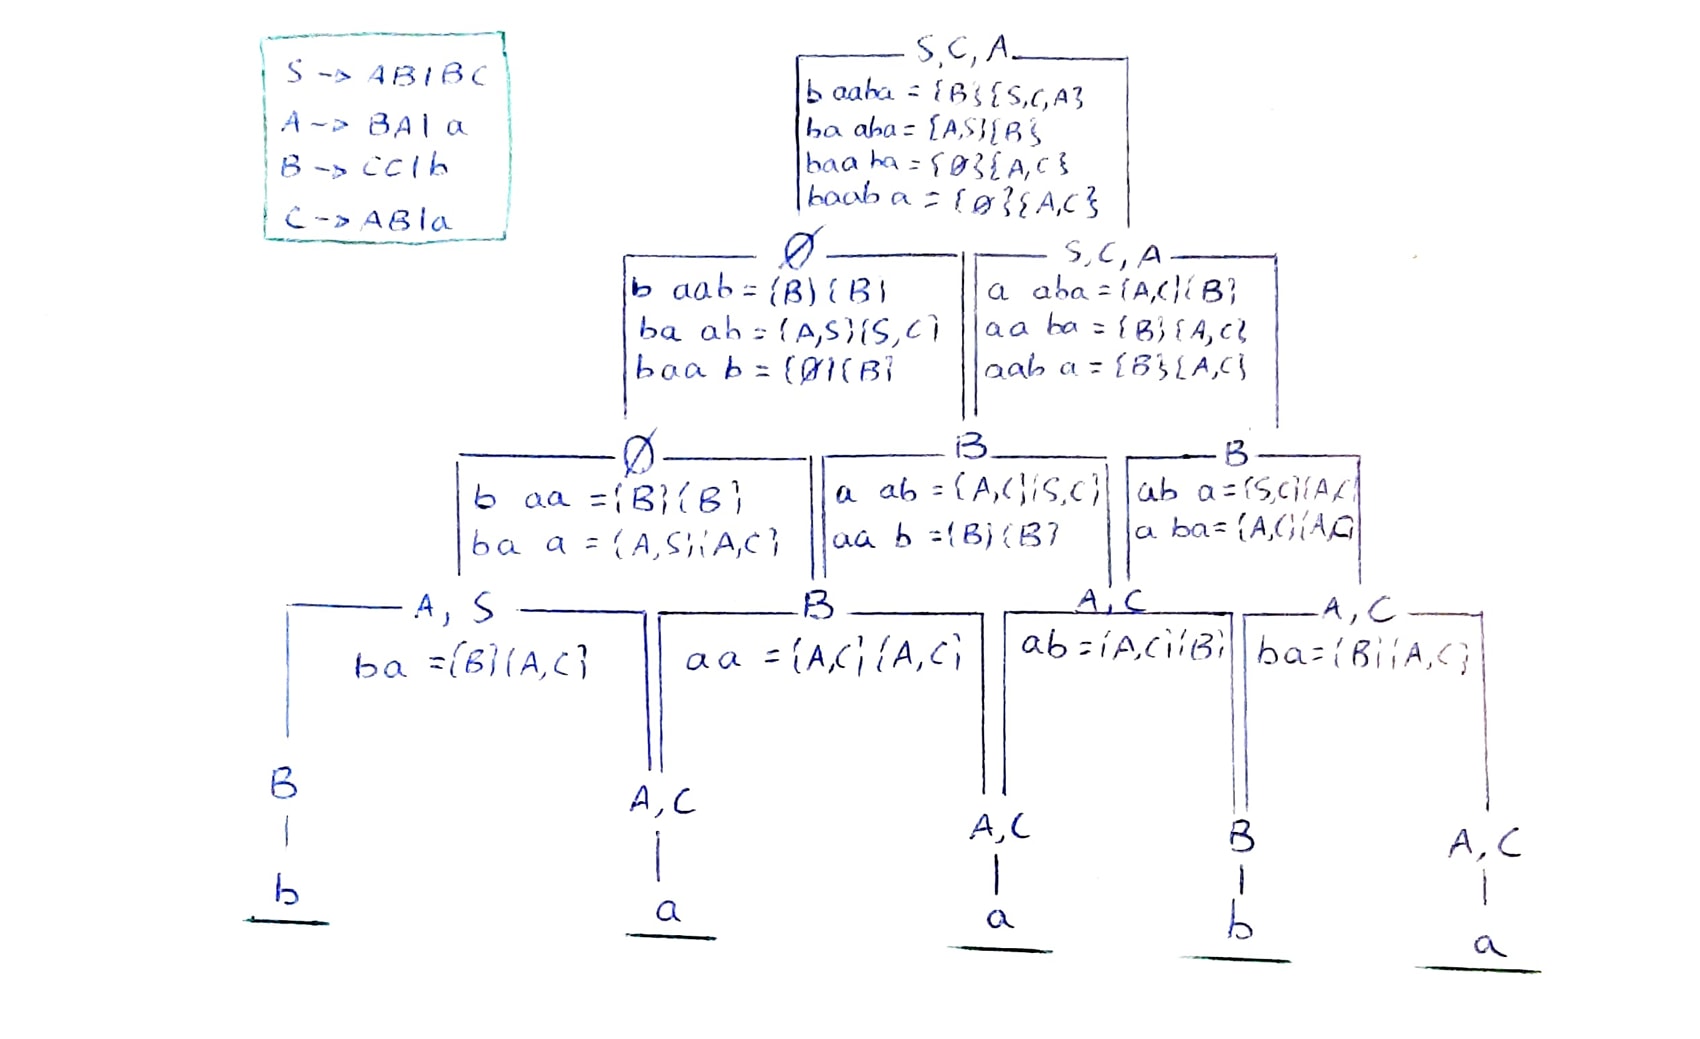 S -> AB|BC
A -> BA|a
B -> CC|b
C -> AB|a
S,C,A
b aaba = {B}{S,C,A}
ba aba = {A,S}{B}
baa ba = {Ø}{A,C}
baab a = {Ø}{A,C}
Ø
b aab = {B}{B}
ba ab = {A,S}{S,C}
baa b = {Ø}{B}
S,C,A
a aba = {A,C}{B}
aa ba = {B}{A,C}
aab a = {B}{A,C}
Ø
b aa = {B}{B}
ba a = {A,S}{A,C}
B
a ab = {A,C}{S,C}
aa b = {B}{B}
B
ab a = {S,C}{A,C
a ba = {A,C}{A,C}
A, S
ba = {B}{A,C}
B
aa = {A,C}{A,C}
A,C
ab = {A,C}{B}
A,C
ba = {B}{A,C}
B
A,C
A,C
B
A,C
b
a
a
b
a